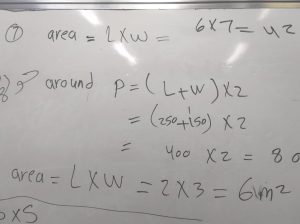 ⑦ area = L X W = 6 X 7 = 42
around P = ( L + W ) X 2
= (250 + 150) X 2
= 400 X 2 = 80
area = L X W = 2 X 3 = 6 m²
X 5